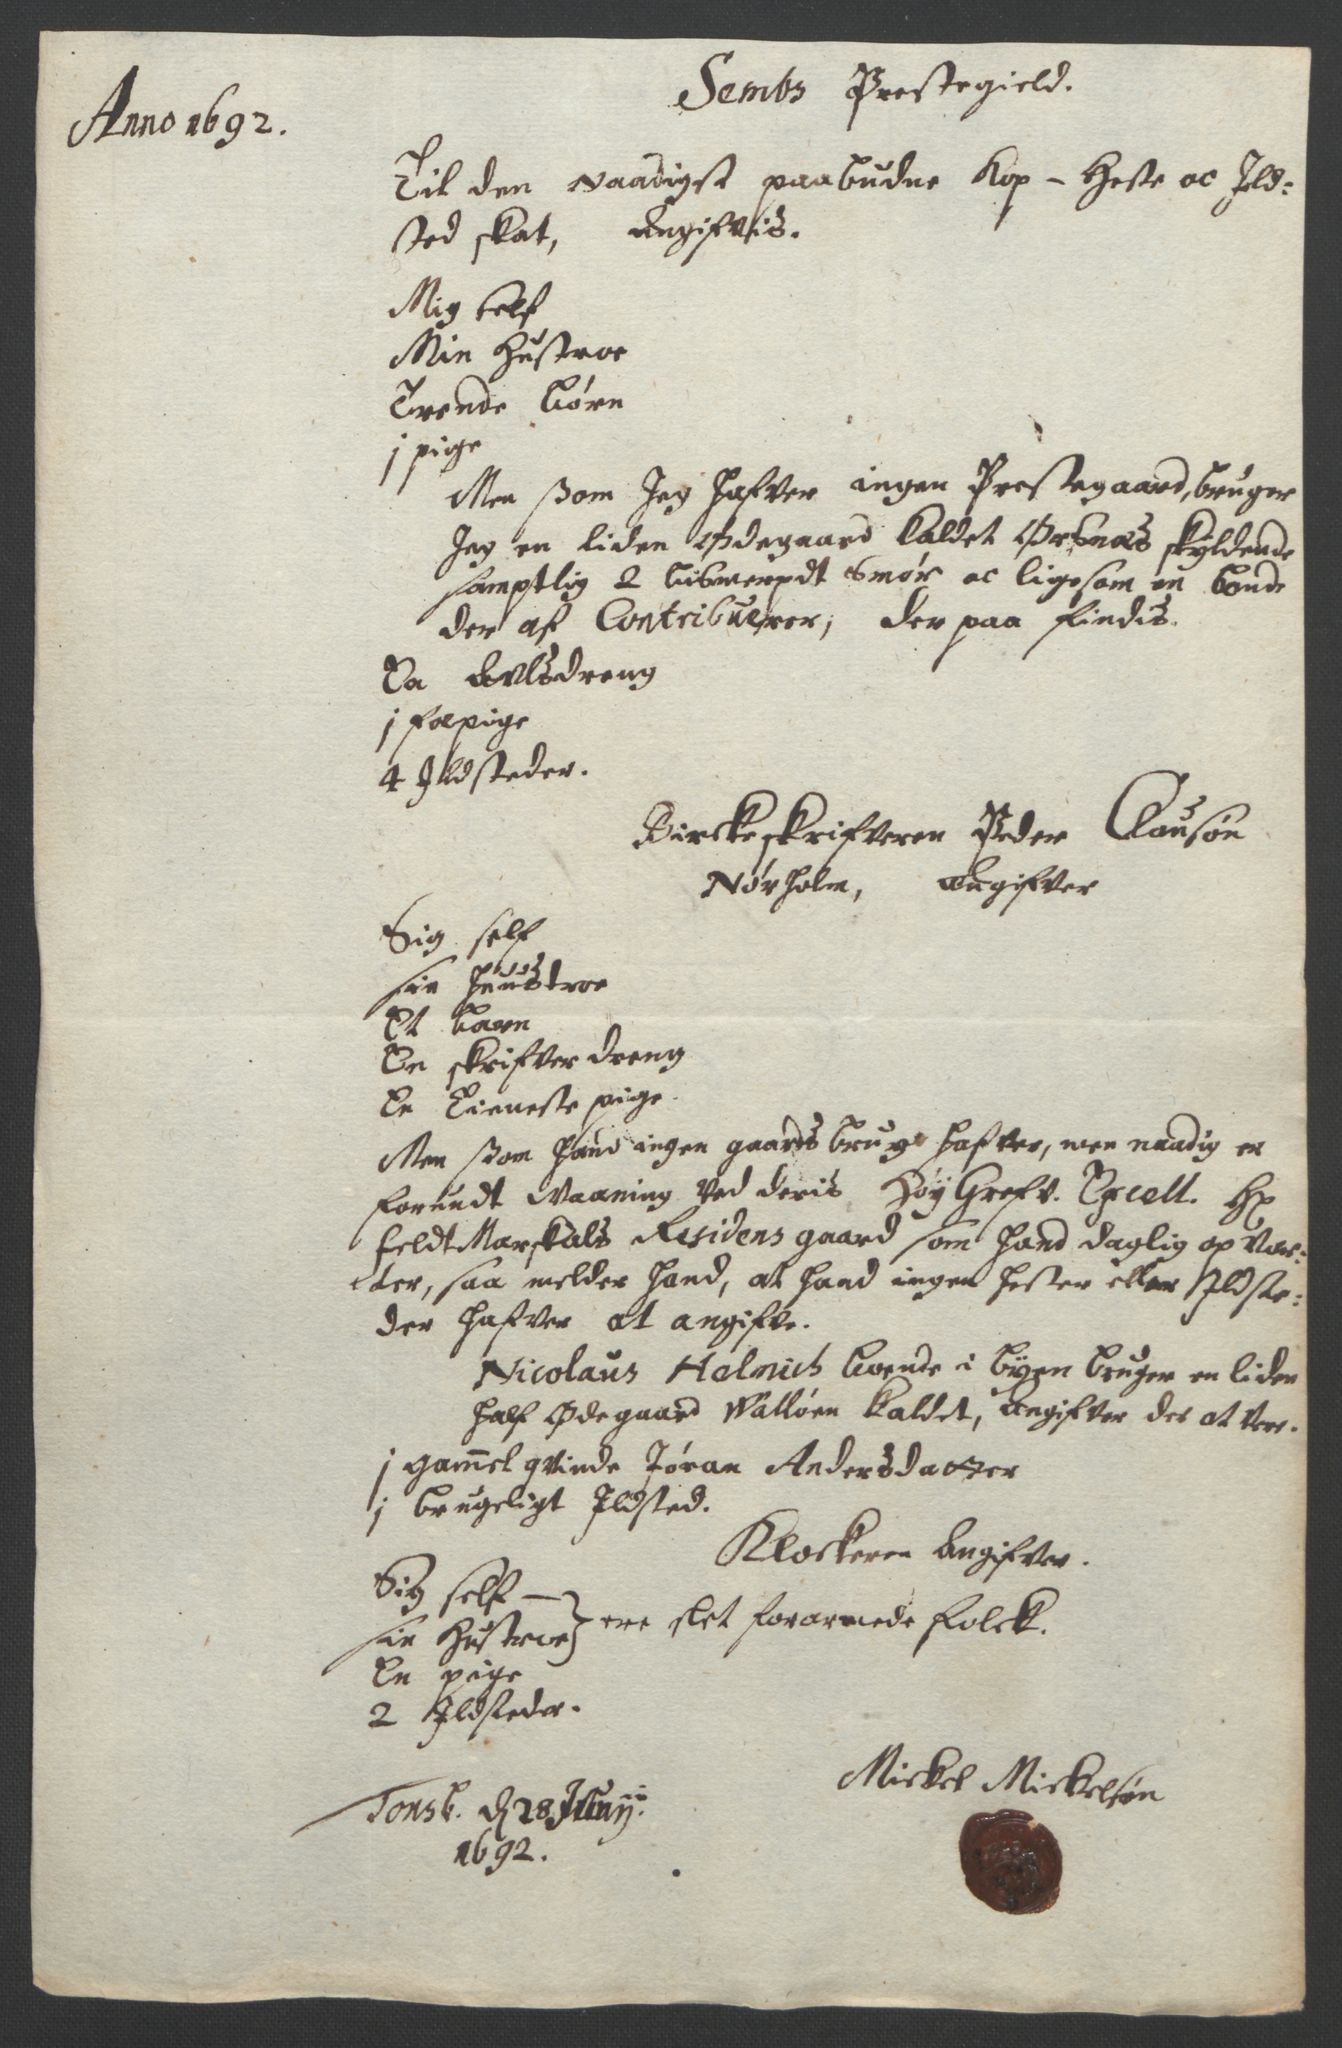 Anno 1692.
Sembs Prestegield.
Til den naadigst paabudne Kop - Heste oc Jld=
sted skat, angifvis.
Mig self
Min Hustroe
Trende børn
j pige
Men ßom Jeg hafver ingen Prestegaard, bruger
Jeg en liden Ødegaard kaldet Ørsnæs skyldende
samptlig 2 bismerpdt Smør oc ligesom en bonde
der af Contribuerer, der paa findis.
En avlsdreng
j fæpige
4 Jldsteder.
Birckeskrifveren Peder Clausøn
Nørholm, angifver
Sig self
sin huustroe
Et barn
En skrifver dreng
En tieneste pige.
Men ßom hand ingen gaards brug hafver, men naadig er
forundt Waaning ved deris Høy Grefv. Excell. Hr
feldtMarskals Residens gaard som hand daglig op var=
ter, saa melder hand, at hand ingen hester eller Jldste=
der hafver at angifve.
Nicolaus Helmich boende i byen bruger en liden
half Ødegaard Walløen kaldet, angifver der at vere.
j gammel qvinde Jøran Andersdatter
j brugeligt Jldsted.
Klockeren angifver.
Sig self
sin Hustroe
ere slet forarmede folck.
En pige
2 Jldsteder.
Tonsb. d 28 Junij.
1692.
Mickel Mickelsøn